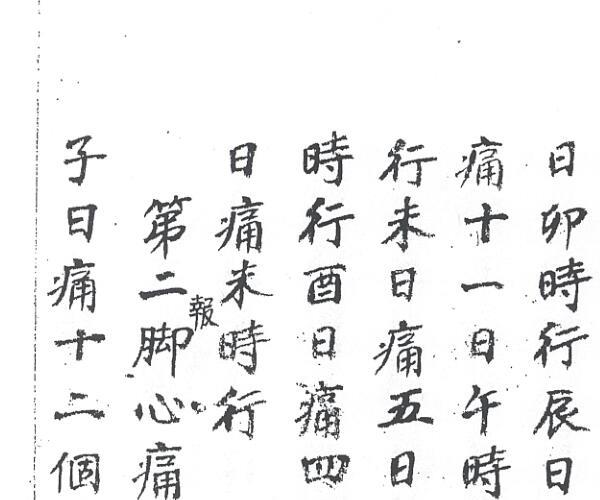 日卯時行辰日
痛十一日午時
行未日痛五日
時行酉日痛四
日痛未時行
報
第二脚心痛
子日痛十二個